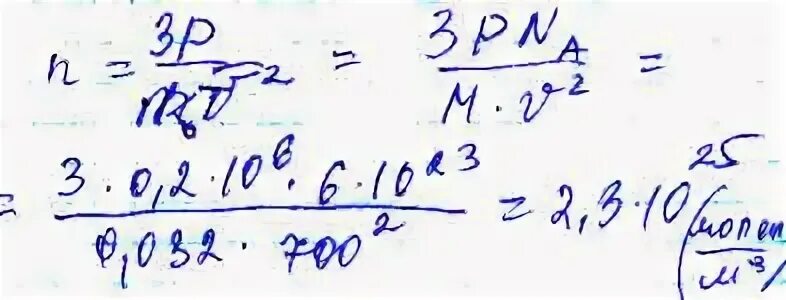 n = 3P / m₀v̄² = 3PN_A / M · v² =
= 3 · 0,2 · 10⁶ · 6 · 10²³ / 0,032 · 700² = 2,3 · 10²⁵ (молек / м³)